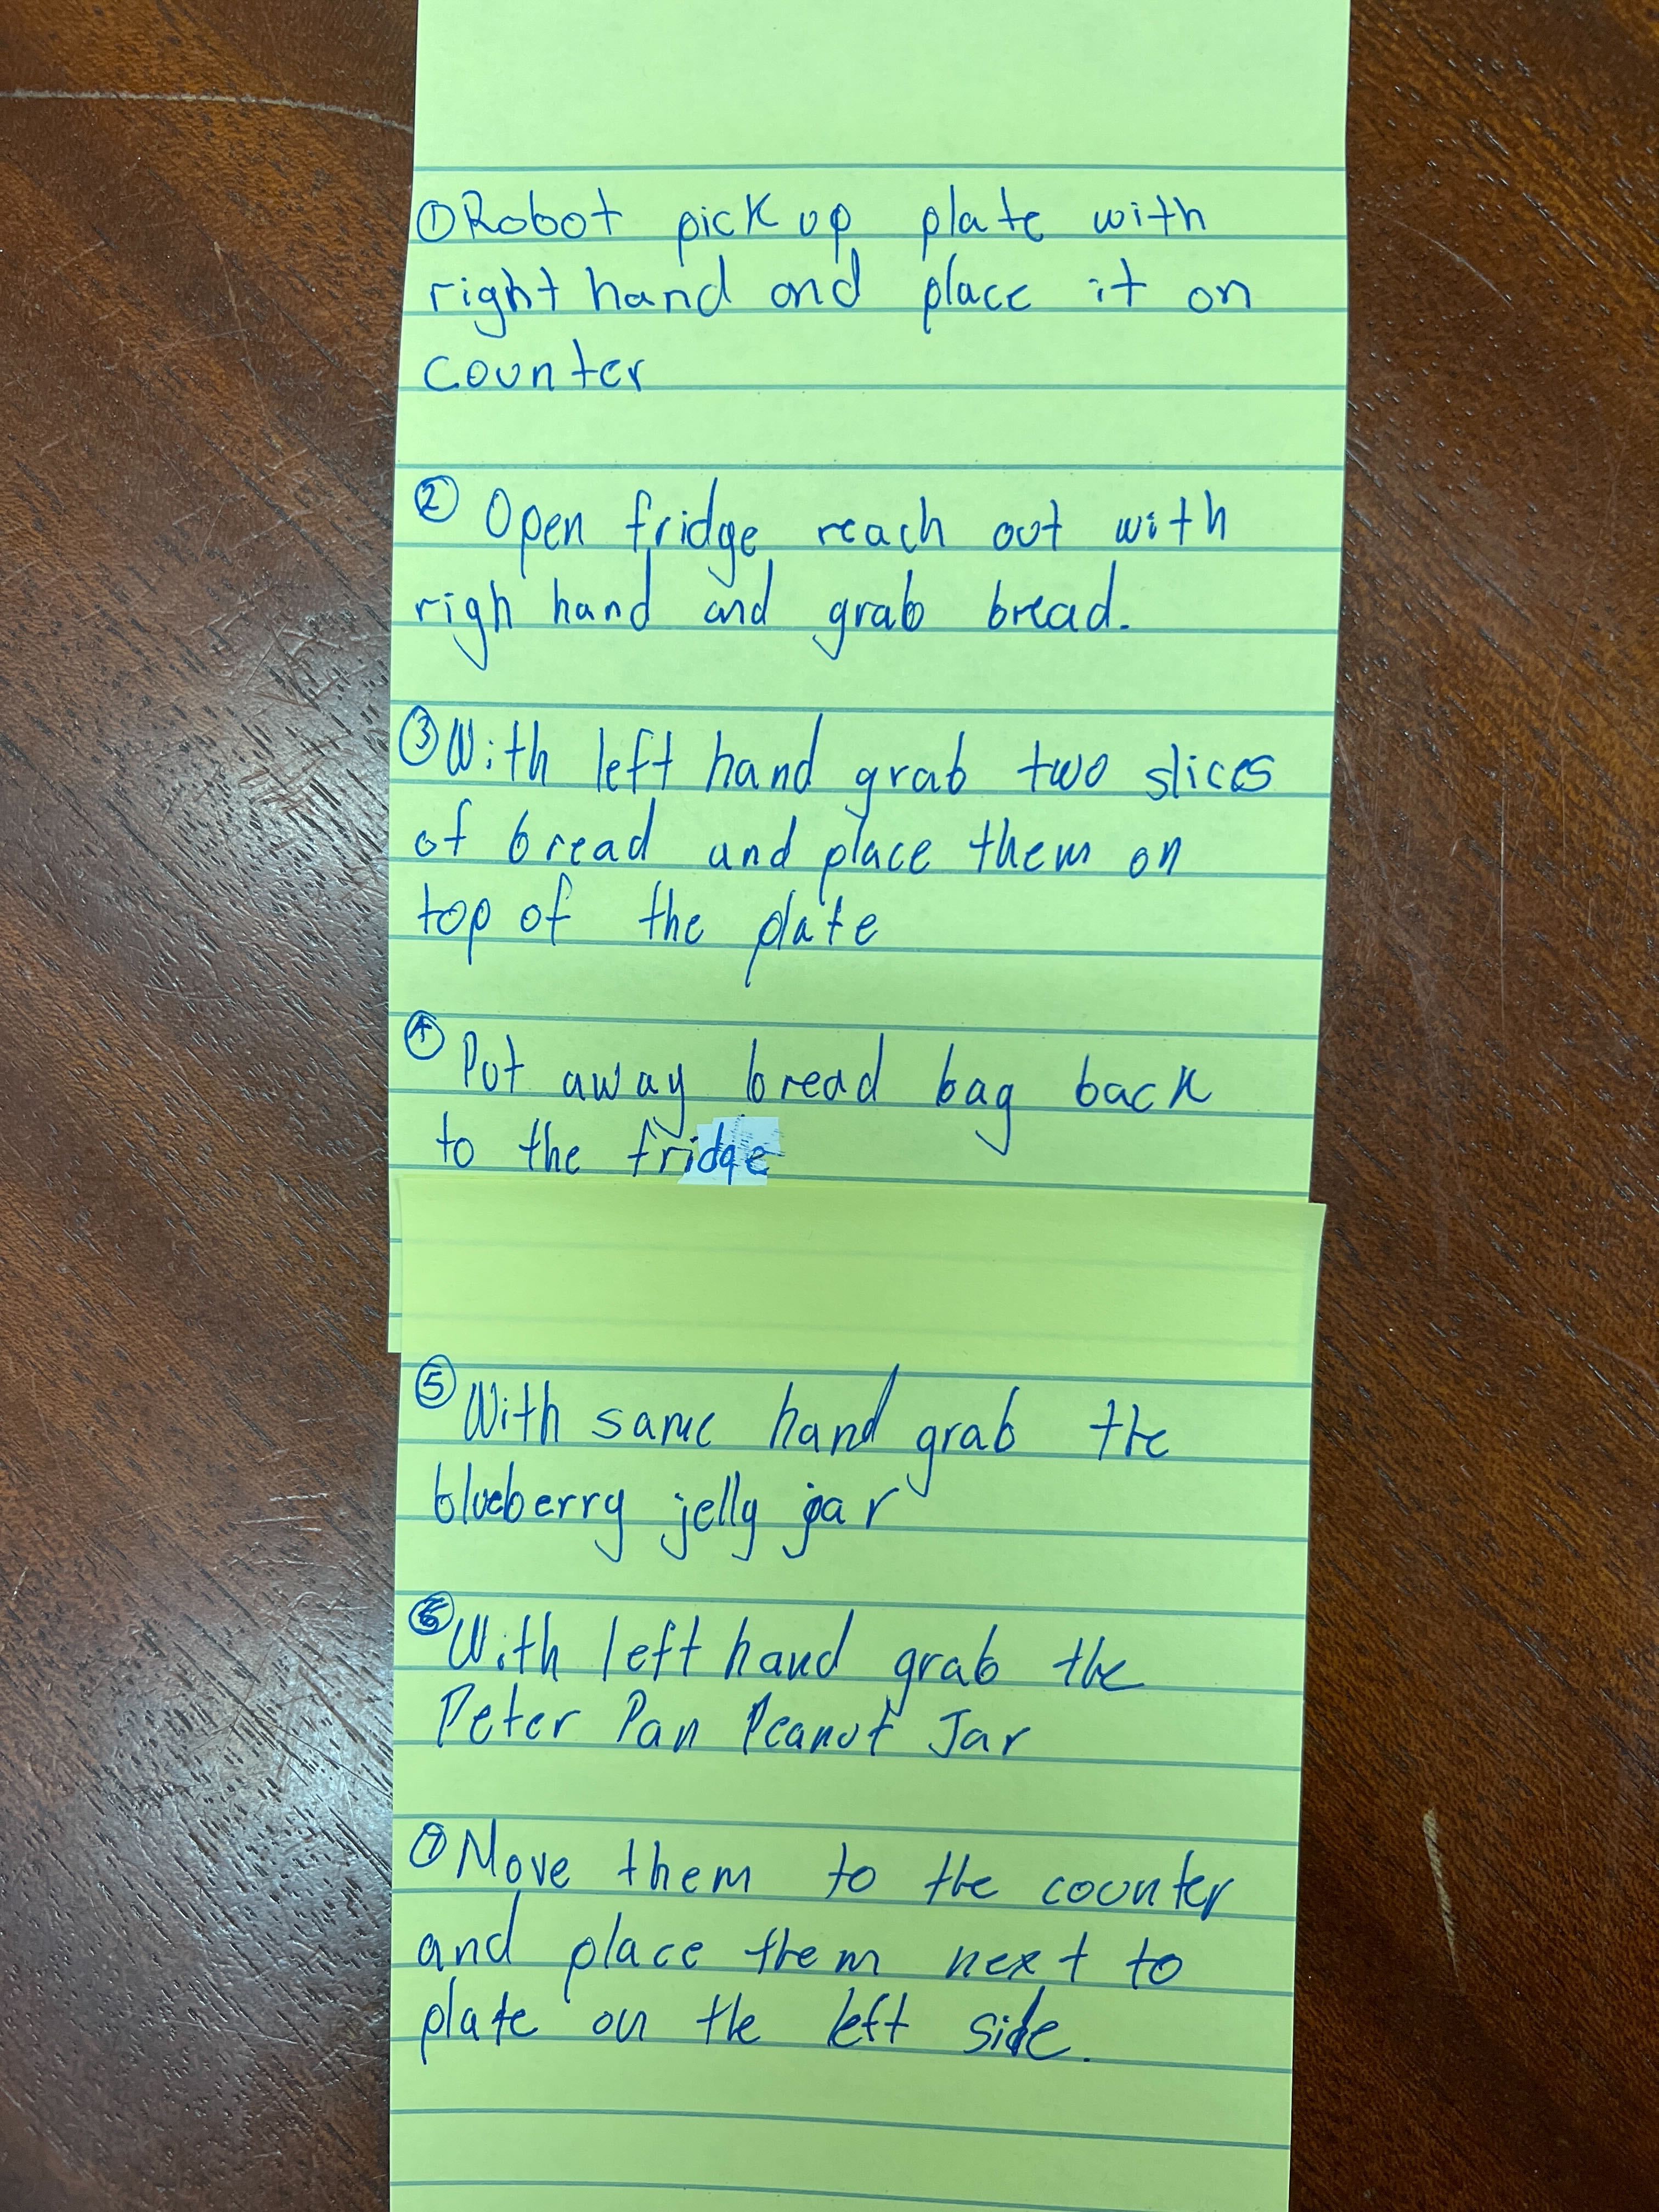 ① Robot pick up plate with
right hand and place it on
counter
② Open fridge reach out with
righ hand and grab bread.
③ With left hand grab two slices
of bread and place them on
top of the plate
④ Put away bread bag back
to the fridge
⑤ With same hand grab the
blueberry jelly jar
⑥ With left hand grab the
Peter Pan Peanut Jar
⑦ Move them to the counter
and place them next to
plate on the left side.